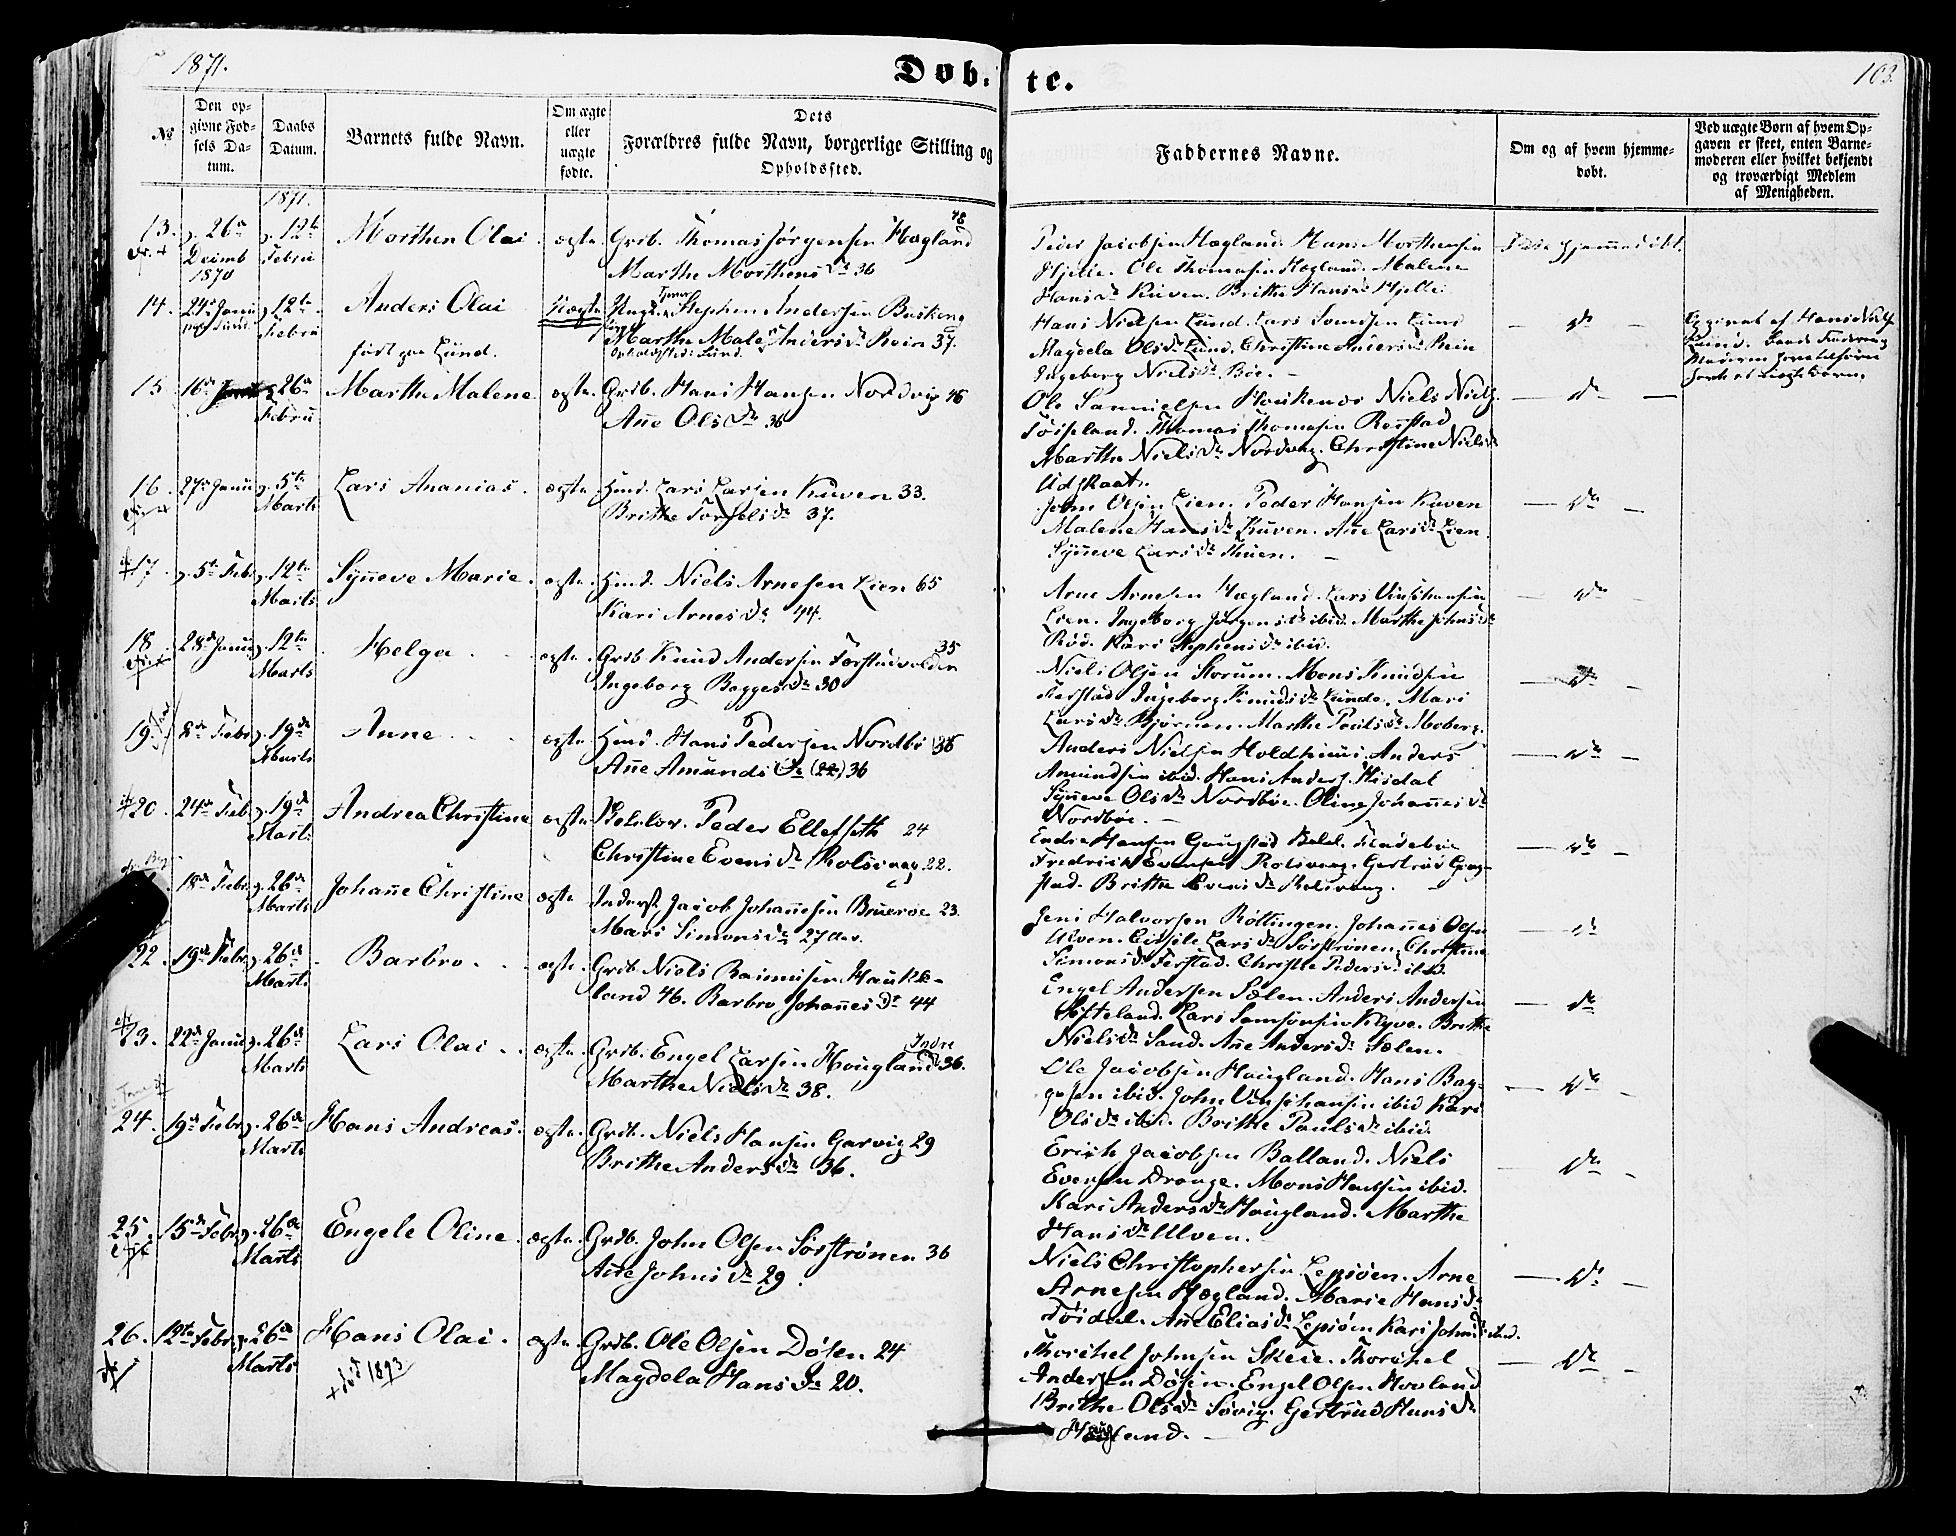 1871.
Døb.
te.
103.
No
Den op-
givne Fød-
sels Da-
tum.
Daabs
Datum.
Barnets fulde Navn.
Om ægte
eller
uægte
fødte.
Dets
Forældres fulde Navn, borgerlige Stilling og
Opholdssted.
Faddernes Navne.
Om og af hvem hjemme-
døbt.
Ved uægte Børn af hvem Op-
gaven er skeet, enten Barne-
moderen eller hvilket bekjendt
og troværdigt Medlem
af Menigheden.
1871.
13. 26de Decimb 1870 12te Febru
Morthen Olai
ægte. Grdb. Thomas Jørgensen Hægland 48
Marthe Morthensdr 36
Peder Jacobsen Hægland. Hans Morthensen
Hjelle. Ole Thomassen Hægland. Malene
Hansdr Kuven. Brithe Hansdr Hjelle
14. 24de Janu 12te Febru
Anders Olai
født paa Lund.
Uægte
Ungk. Stephen Andersen
Marthe Male Andersdr Rein 37.
Opholdssted: Lund.
Hans Nielsen Lund. Lars Lund
Magdela Olsdr Lund. Christine Andersdr Rein
Ingeborg Nielsdr Bøe.
dr
15 16de 26de Febru
Marthe Malene
ægte. Grdb. Hans Hansen Nordvig 46
Anne Olsdr 36
Ole Samuelsen Haukenæs Niels Niels.
Thomas Thomasen
Marthe Nielsdr Nordvig. Christine Nielsdr
Udskaat.
dr
16. 27de Janu 5te Marts
Lars Ananias.
ægte. Husd. Lars Larsen Kuven 33.
Brithe Torgelsdr 37.
John Olsen Lien. Peder Hansen Kuven
Malene Hansdr Kuven. Anne Larsdr Lien
Synneve Larsdr Thuen.
dr
17. 5te Feb. 12te Marts
Synneve Marie.
ægte. Husd. Niels Arnesen Lien 65
Kari Arnesdr 44.
Arne Arnesen Hægland. Lars Vinsjhansen
Lien. Ingeborg Jørgensdr ibid. Marthe Johnsdr
Rød. Kari Stephensdr ibid.
dr
18 28de Janu 12te Marts
Helga
ægte. Grdb Knud Andersen 35
Ingeborg Baggesdr 30
Niels Olsen Storum. Mons Knudsen
Ferstad. Ingeborg Knudsdr Lunde. Mari
Larsdr Bjørnen. Marthe Poulsdr Moberg.
dr
19. 8de Febr. 19de Marts
Anne
ægte. Husd. Hans Pedersen Nordbø 36
Anne Amundsdr (22) 36
Anders Nielsen Holdhuus. Anders
Amundsen ibid. Hans Anders.
Synneve Olsdr Nordbøe. Oline Johannesdr
Nordbøe.
dr
20. 24de Feb. 19de Marts
Andrea Christine
ægte. Peder Ellefseth 24
Christine Evensdr Rolsvaag 22.
Endre Hansen Gaugstad
Fredrich Evensen Rolsvaag. Gertrud Gaug-
stad. Brithe Evensdr Rolsvaag.
dr
18de Febr. 26de Marts
Johanne Christine
ægte Inderst Jacob Johannesen Bruerøe 23.
Mari Simonsdr 27
Jens Halvorsen Røttingen. Johannes Olsen
Ulven. Larsdr Sørstrønen. Christine
Simonsdr Ferstad. Christe Pedersdr ibid.
dr
22. 19de Febr. 26de Marts
Barbro.
ægte. Grdb. Niels Rasmusen Haukke-
land 46. Barbro Johannesdr 44
Engel Andersen Sælen. Anders Andersen
Søfteland. Lars Samsonsen Klyve. Brithe
Nielsdr Sand. Anne Andersdr Sælen.
dr
23. 22de Janu 26de Marts
Lars Olai
ægte. Grdb. Engel Larsen Hougland Indre 36.
Marthe Nielsdr 38.
Ole Jacobsen Hougland. Hans Bag-
gesen ibid. John Vinsjhansen ibid Kari
Olsdr ibid. Brithe Paulsdr ibid.
dr
24. 19de Febr. 26de Marts
Hans Andreas.
ægte. Grdb. Niels Hansen Garvig 29
Brithe Andersdr 36.
Erich Jacobsen Balland. Niels
Evensen Drange. Mons Hansen ibid.
Kari Andersdr Hougland. Marthe
Hansdr Ulven.
dr
25. 15de Febr. 26de Marts
Engele Oline.
ægte. Grdb. John Olsen Sørstrønen 36
Anne Johnsdr 29.
Niels Christophersen Lepsøen. Arne
Arnesen Hægland. Marie Hansdr
Anne Eliasdr Lepsøen Kari Johnsdr ibid.
dr
26. 12te Febr. 26de Marts
Hans Olai.
+ død 1893
ægte. Grdb. Ole Olsen Døsen 24
Magdela Hansdr 20.
Thorchel Johnsen Skeie. Thorchel
Andersen Døsen. Engel Olsen Hovland
Brithe Olsdr Søvig. Gertrud Hansdr
Haugland.
dr